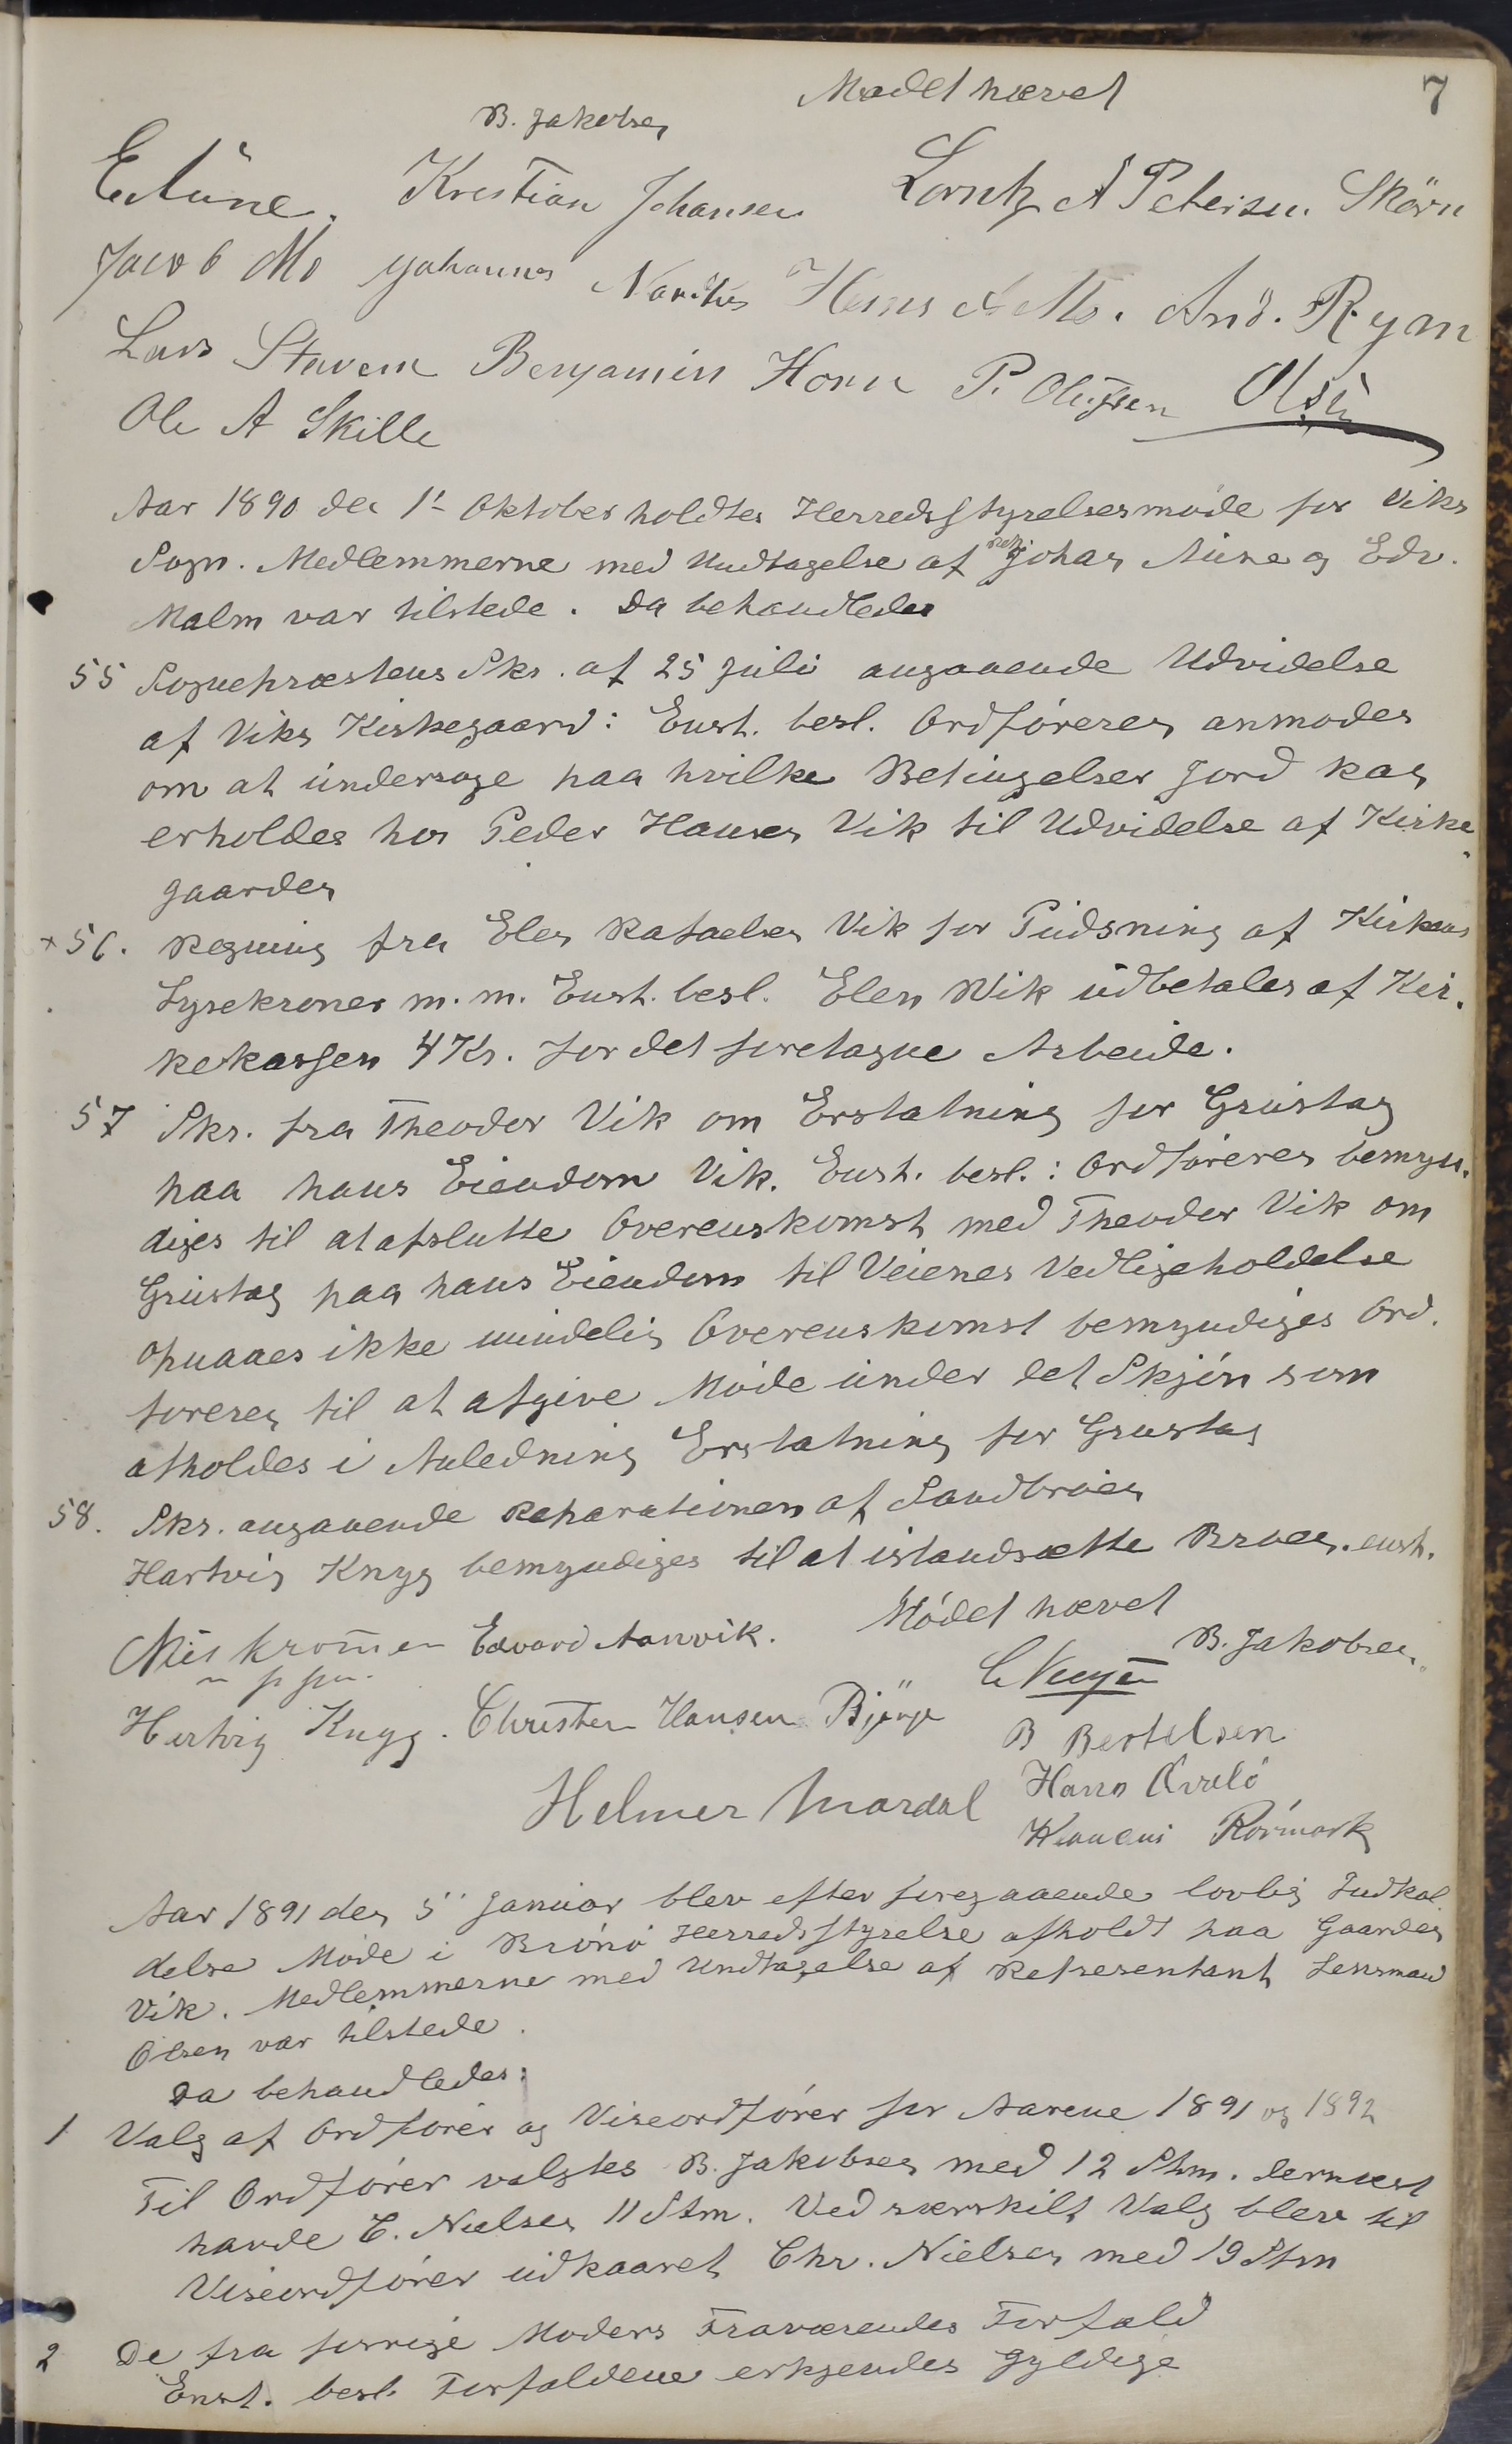 7
Mødet hævet
B. Jakobsen
E Aune. Kristian Johansen Lorntz A Petersen. Skärn
Jacob Mo Johannes Hans A Mo. And. Ryan
Lars Stavem Benjamin Horn P. Olufsen Olsen
Ole A Skille
Aar 1890 den 1ste Oktober holdtes Herredsstyrelsesmøde for Viks
Sogn. Medlemmerne med Undtagelse af rep. Johan Aune og Edv.
Malm var tilstede. Da behandledes
55 Sognepræstens Skr. af 25 Juli angaaende Udvidelse
af Viks Kirkegaard: Enst. besl. Ordføreren anmodes
om at undersøge paa hvilke Betingelser Jord kan
erholdes hos Peder Hansen Vik til Udvidelse af Kirke
gaarden
x 56. Regning fra Elen Rafaelsen Vik for Pudsning af Kirkens
Lysekroner m. m. Enst. besl. Elen Wik udbetales af Kir-
kekassen 4 Kr. for det foretagne Arbeide.
57 Skr. fra Theodor Vik om Erstatning for Grustag
paa hans Eiendom Vik. Enst. besl.: Ordføreren bemyn-
diges til at afslutte Overenskomst med Theodor Vik om
Grustag paa hans Eiendom til Veienes Vedligeholdelse
opnaaes ikke mindelig Overenskomst bemyndiges Ord-
føreren til at afgive Møde under det Skjøn som
afholdes i Anledning Erstatning for Grustag
58. Skr. angaaende Reparationen af Sandbroen
Hartvig Knyg bemyndiges til at istandsætte Broen. enst.
Mødet hævet
Edvard Aanvik. B. Jakobsen
Hertvig Knyg. Christen Hansen B Bertelsen
Helmer Mardal Hans
Rørmark
Aar 1891 den 5 Januar blev efter foregaaende lovlig Indkal
delse Møde i Brønø Herredsstyrelse afholdt paa Gaarden
Vik. Medlemmerne med Undtagelse af Repræsentant Lensmand
Olsen var tilstede.
Da behandledes:
1 Valg af Ordfører og Viseordfører for Aarene 1891 og 1892
Til Ordfører valgtes B. Jakobsen med 12 Stm. dernæst
havde C. Nielsen 11 Stm. Ved særskilt Valg blev til
Viseordfører udkaaret Chr. Nielsen med 19 Stm
2 De fra forrige Møders Fraværendes Forfald
Enst. besl. Forfaldene erkjendes gyldige